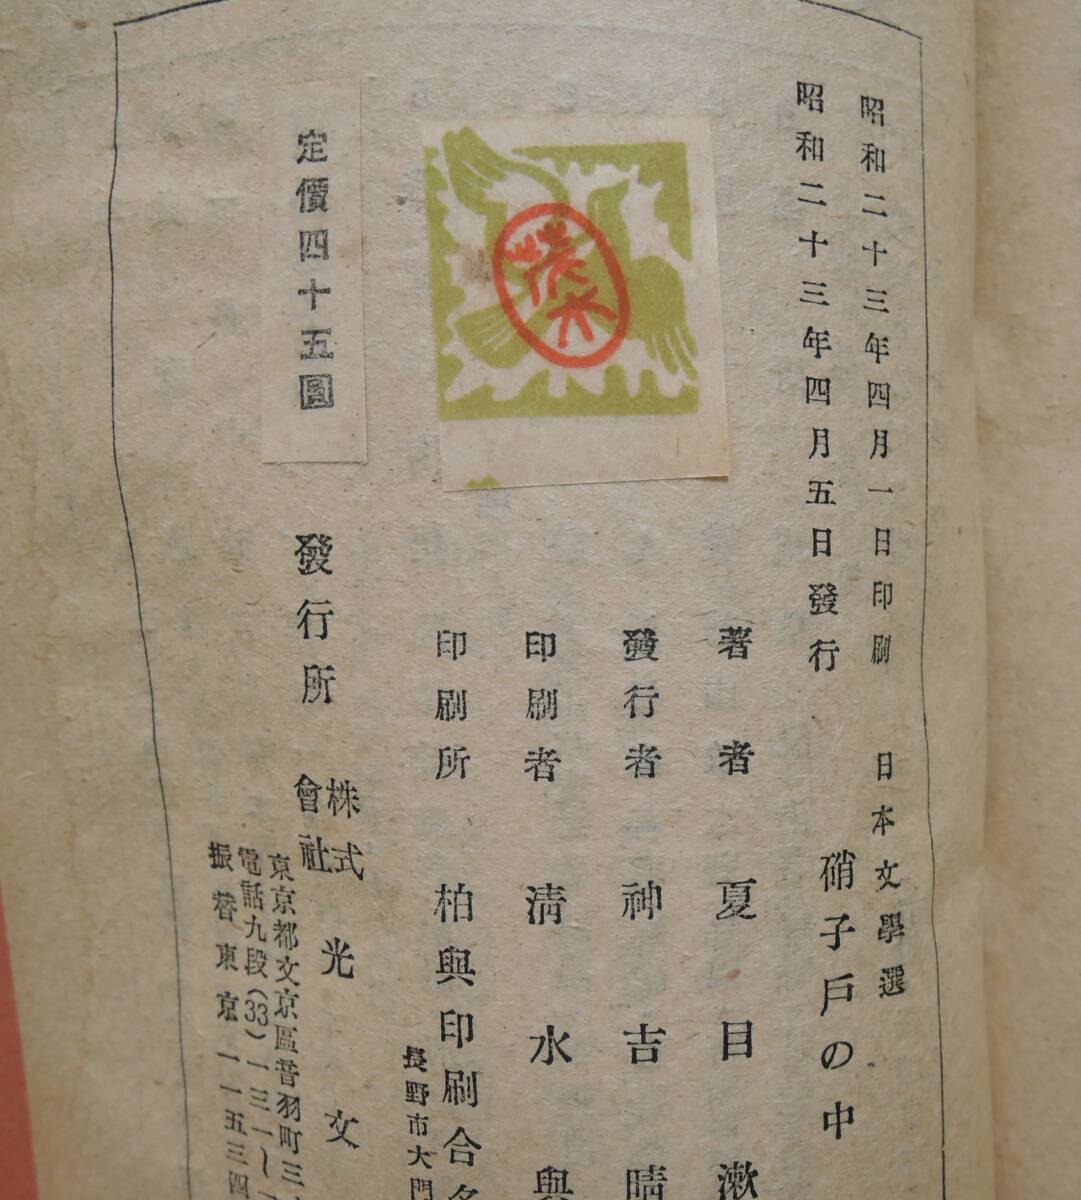 昭和二十三年四月一日印刷
昭和二十三年四月五日發行
日本文學選
硝子戸の中
著者 夏目漱
發行者 神吉晴
印刷者 淸水與
印刷所 柏與印刷合名
長野市大門
定價四十五圓
發行所 株式會社 光文
東京都文京區音羽町三
電話九段(33)一三一〜
振替東京一一五三四